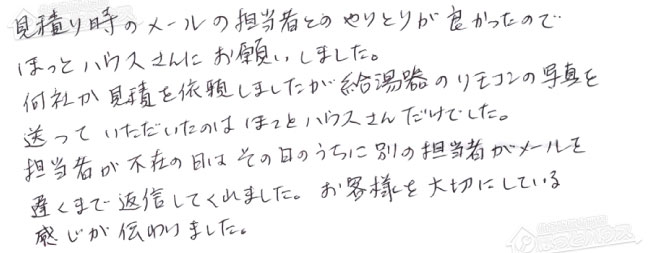 見積り時のメールの担当者とのやりとりが良かったので
ほっとハウスさんにお願いしました。
何社か見積を依頼しましたが給湯器のリモコンの写真を
送っていただいたのはほっとハウスさんだけでした。
担当者が不在の日はその日のうちに別の担当者がメールを
遅くまで返信してくれました。お客様を大切にしている
感じが伝わりました。